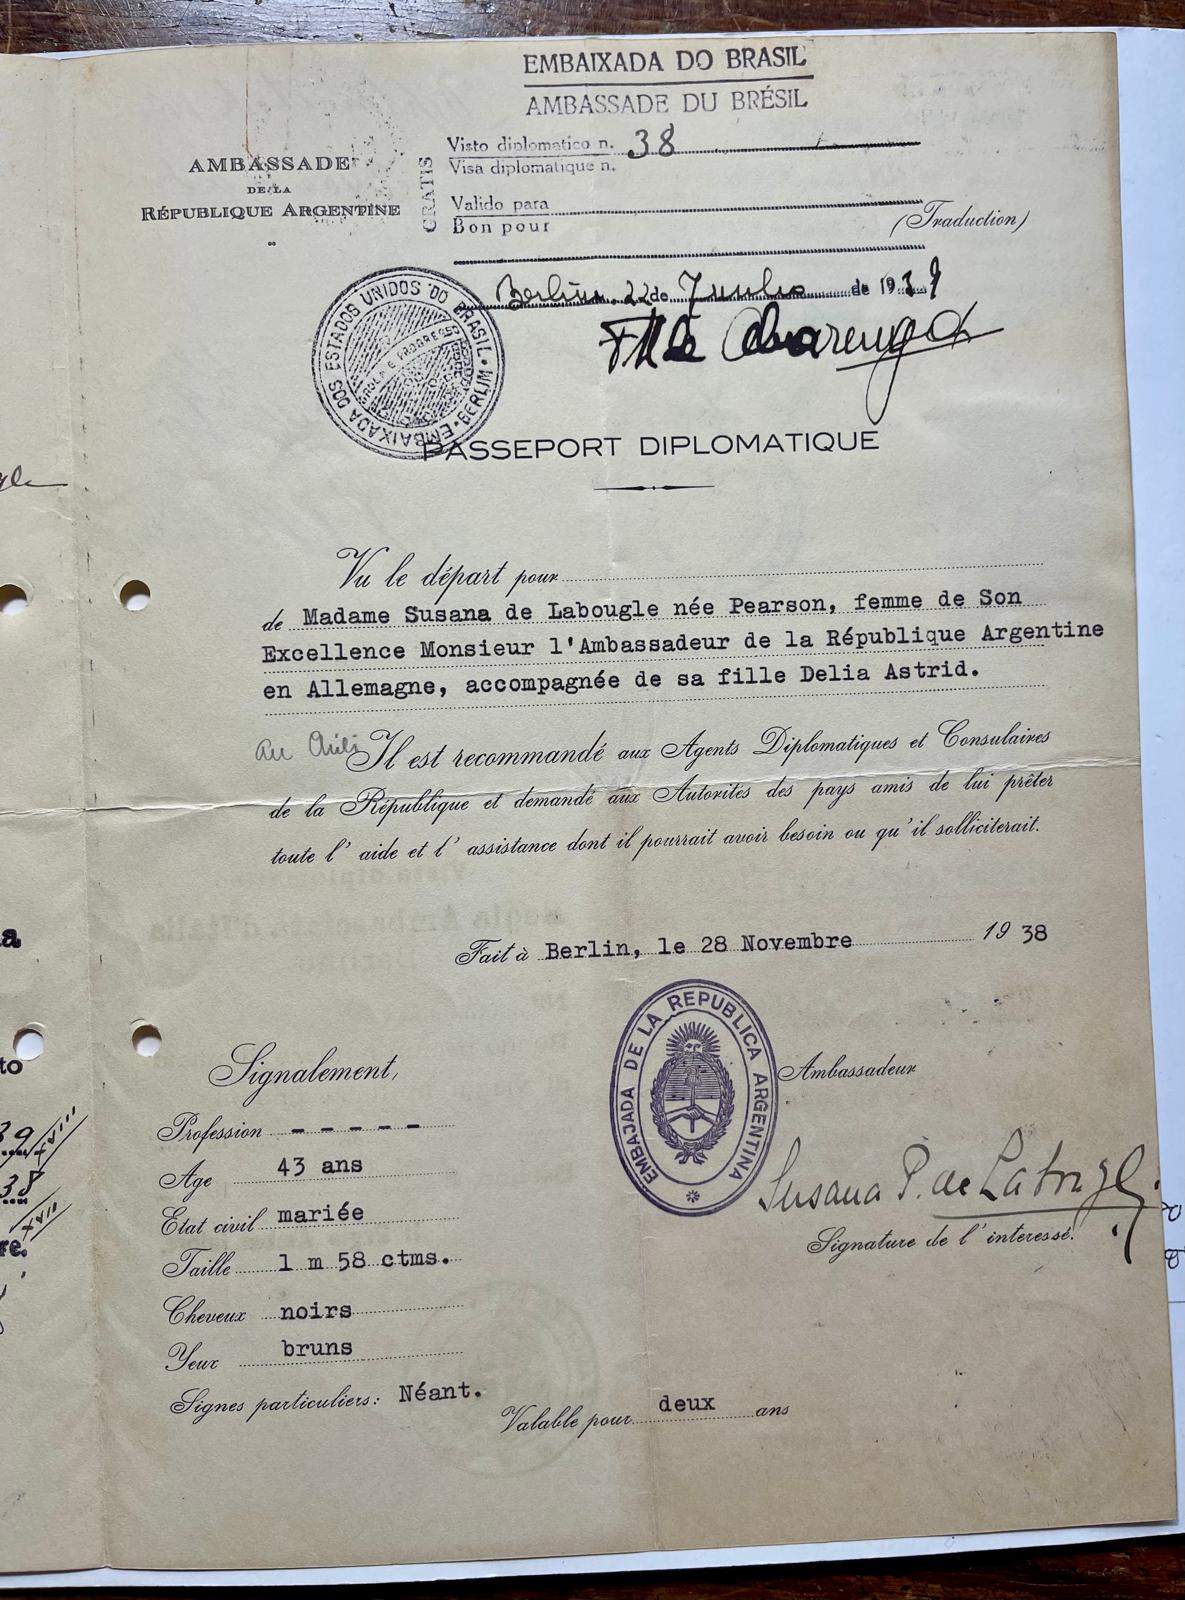 EMBAIXADA DO BRASIL
AMBASSADE DU BRÉSIL
Visto diplomatico n. 38
Visa diplomatique n.
GRATIS
Valido para
Bon pour
Berlim, 22 de Junho de 1939
AMBASSADE
DE LA
RÉPUBLIQUE ARGENTINE
(Traduction)
EMBAIXADA DOS ESTADOS UNIDOS DO BRASIL · BERLIM
PASSEPORT DIPLOMATIQUE
Vu le départ pour
de Madame Susana de Labougle née Pearson, femme de Son
Excellence Monsieur l'Ambassadeur de la République Argentine
en Allemagne, accompagnée de sa fille Delia Astrid.
au
Il est recommandé aux Agents Diplomatiques et Consulaires
de la République et demandé aux Autorités des pays amis de lui prêter
toute l' aide et l' assistance dont il pourrait avoir besoin ou qu'il solliciterait.
Fait à Berlin, le 28 Novembre 1938
EMBAJADA DE LA REPUBLICA ARGENTINA
Ambassadeur
Susana P. de Labougle
Signature de l' interessé.
Signalement,
Profession - - - - -
Age 43 ans
Etat civil mariée
Taille 1 m 58 ctms.
Cheveux noirs
Yeux bruns
Signes particuliers: Néant.
Valable pour deux ans